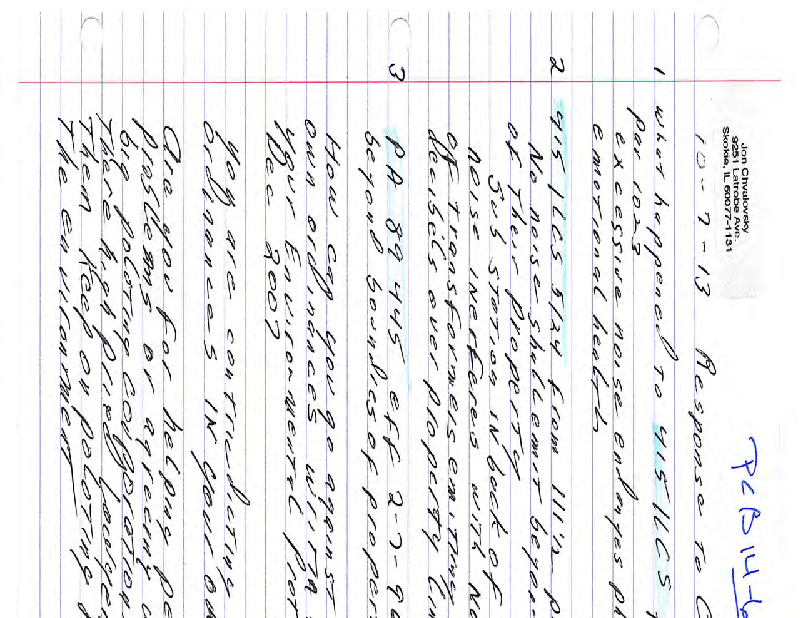 Jon Chvalovsky
9251 Latrobe Ave
Skokie, IL 60077-1131
PCB 14-
10-7-13 Response to C
1 what happened to 415 ILCS
par 1023
excessive noise endanges ph
emotional health
2 415 ILCS 5/24 from Ill's p
No noise shall emit beyon
of their property
Sub station in back of
noise inerferes with ne
of transformers emitting
decibils over property lin
3 PA 89 445 eff 2-7-96
beyond boundies of proper
How can you go against
own ordinances written
your Enviormental prot
Dec 2007
You are contridicting
ordinances in your ow
Are you for helping pe
problems or agreeing
big poloting corporation
There high priced lawyer
Them keep on poloting
The envirorment